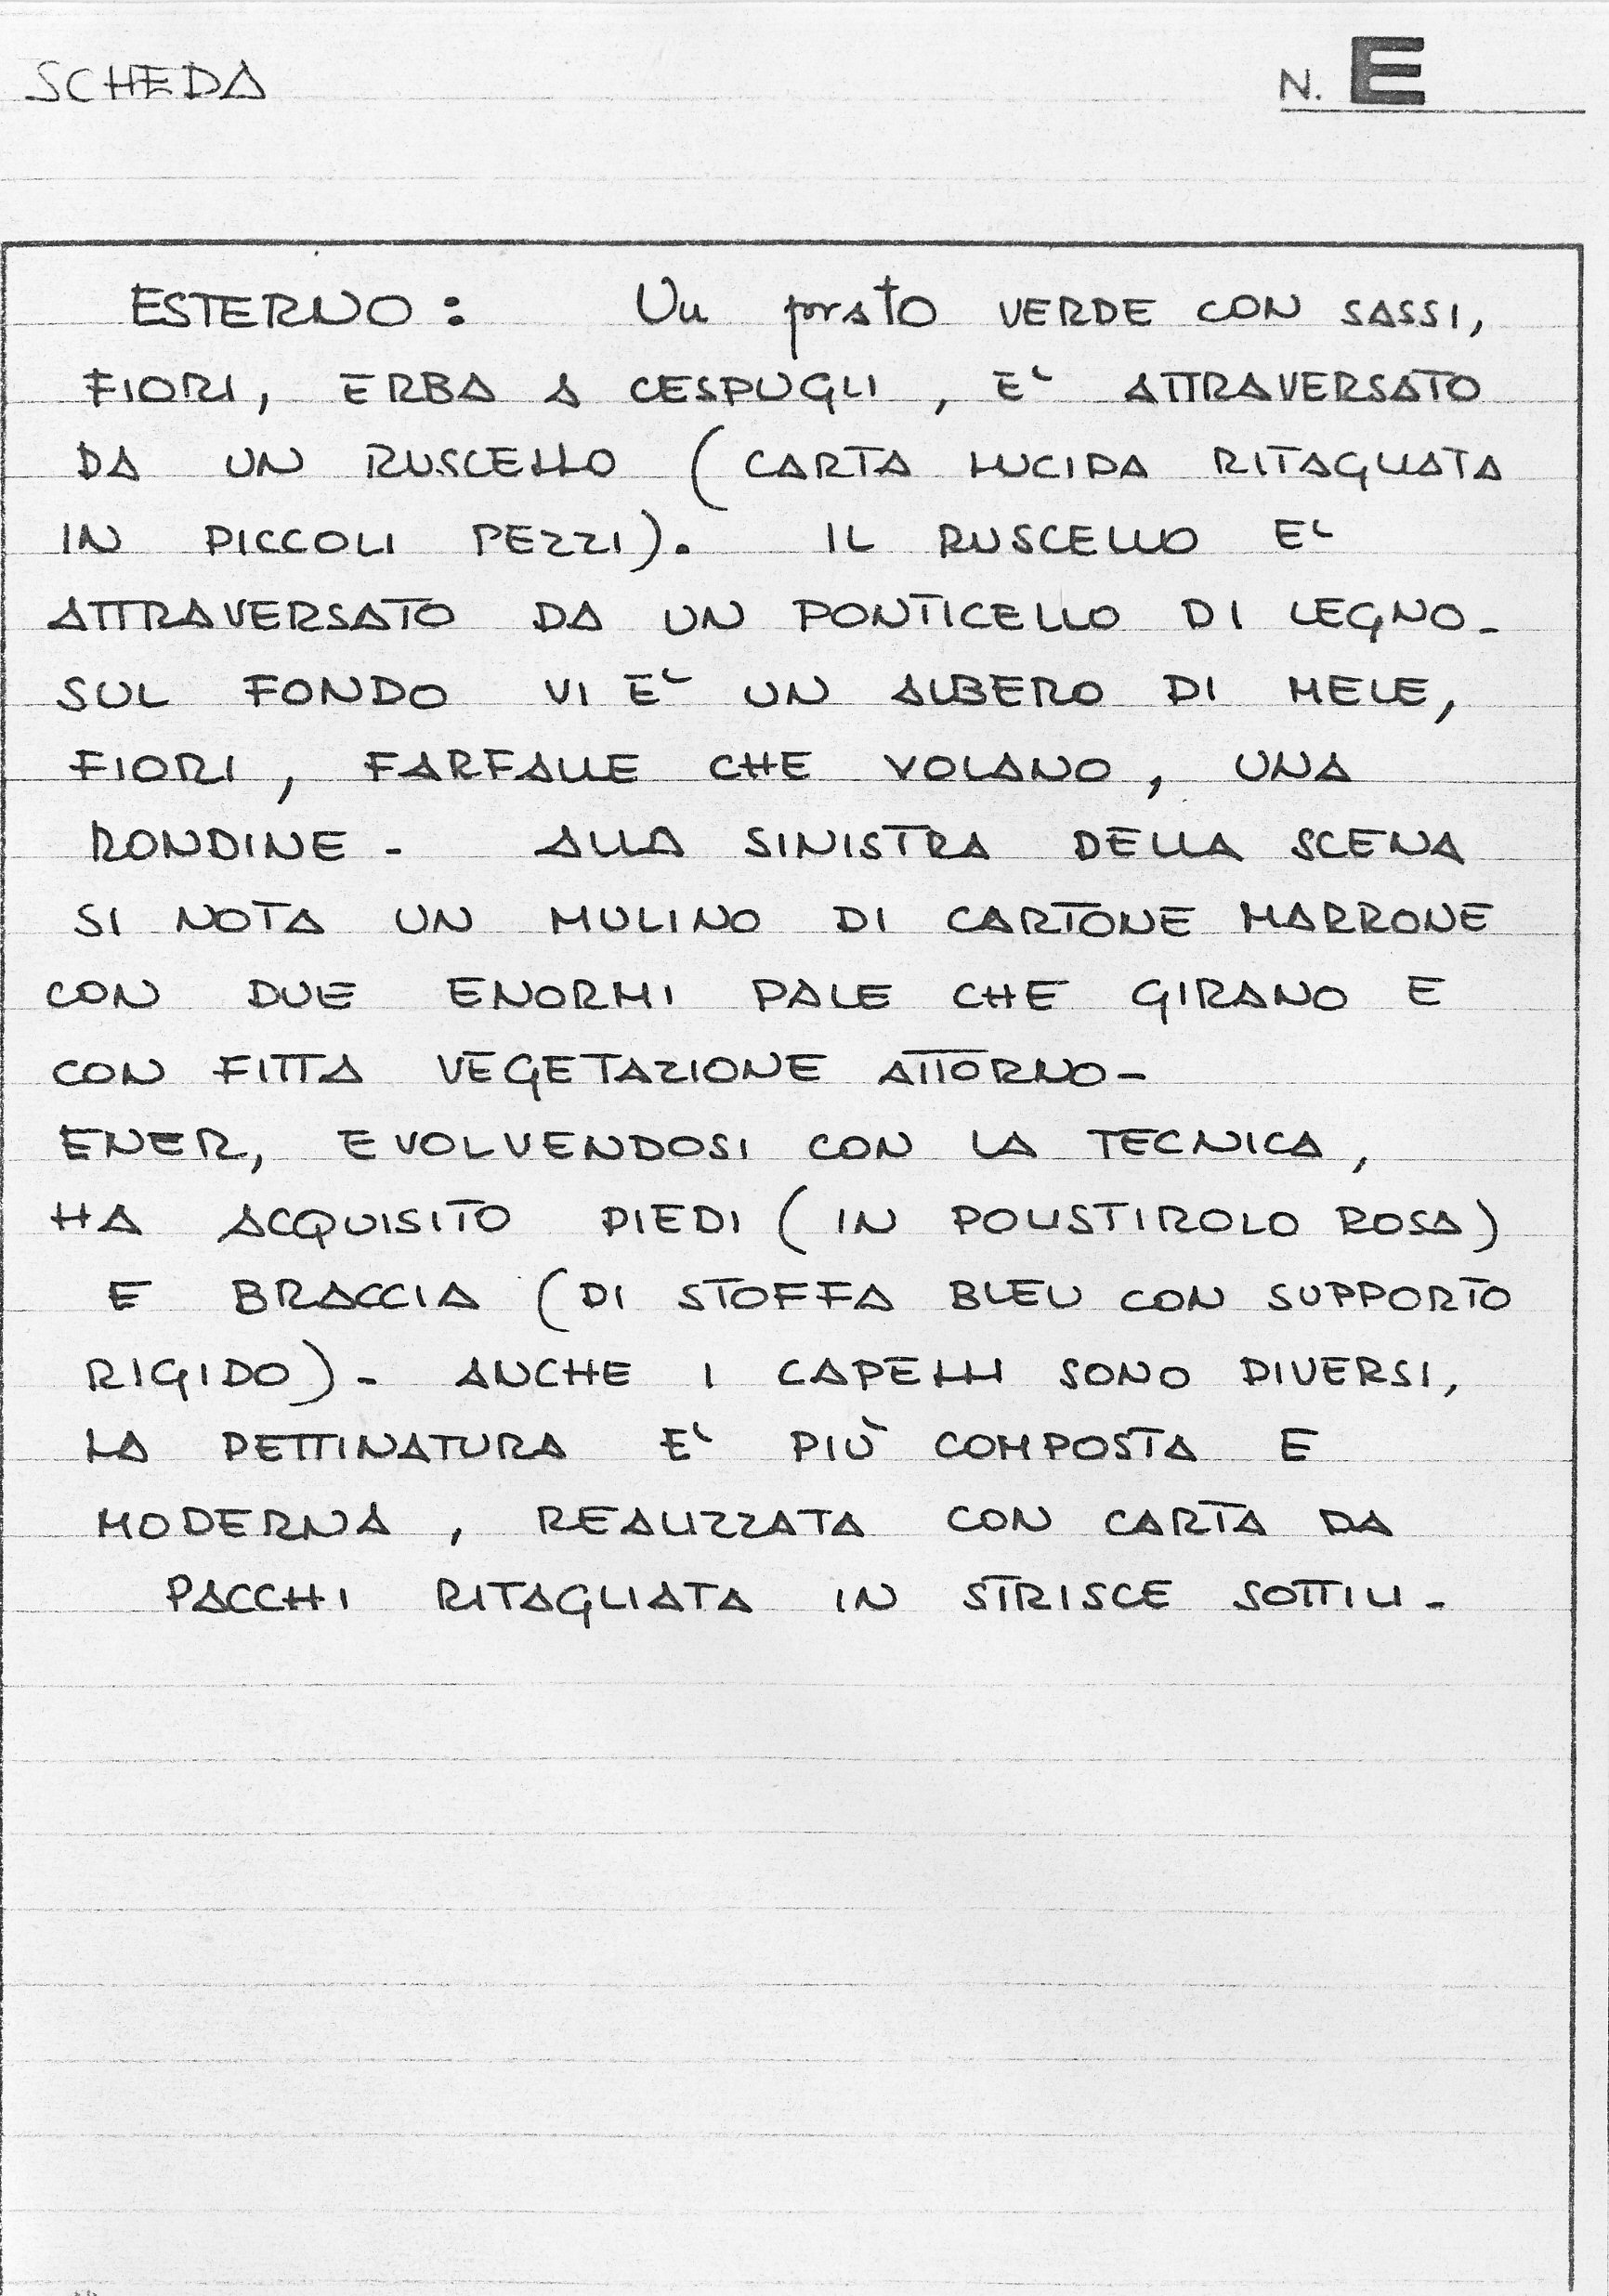 SCHEDA
N. E
ESTERNO: Un prato VERDE CON SASSI,
FIORI, ERBA A CESPUGLI, E' ATTRAVERSATO
DA UN RUSCELLO (CARTA LUCIDA RITAGLIATA
IN PICCOLI PEZZI). IL RUSCELLO E'
ATTRAVERSATO DA UN PONTICELLO DI LEGNO-
SUL FONDO VI E' UN ALBERO DI MELE,
FIORI, FARFALLE CHE VOLANO, UNA
RONDINE - ALLA SINISTRA DELLA SCENA
SI NOTA UN MULINO DI CARTONE MARRONE
CON DUE ENORMI PALE CHE GIRANO E
CON FITTA VEGETAZIONE ATTORNO-
ENER, EVOLVENDOSI CON LA TECNICA,
HA ACQUISITO PIEDI (IN POLISTIROLO ROSA)
E BRACCIA (DI STOFFA BLEU CON SUPPORTO
RIGIDO)- ANCHE I CAPELLI SONO DIVERSI,
LA PETTINATURA E' PIÙ COMPOSTA E
MODERNA, REALIZZATA CON CARTA DA
PACCHI RITAGLIATA IN STRISCE SOTTILI-